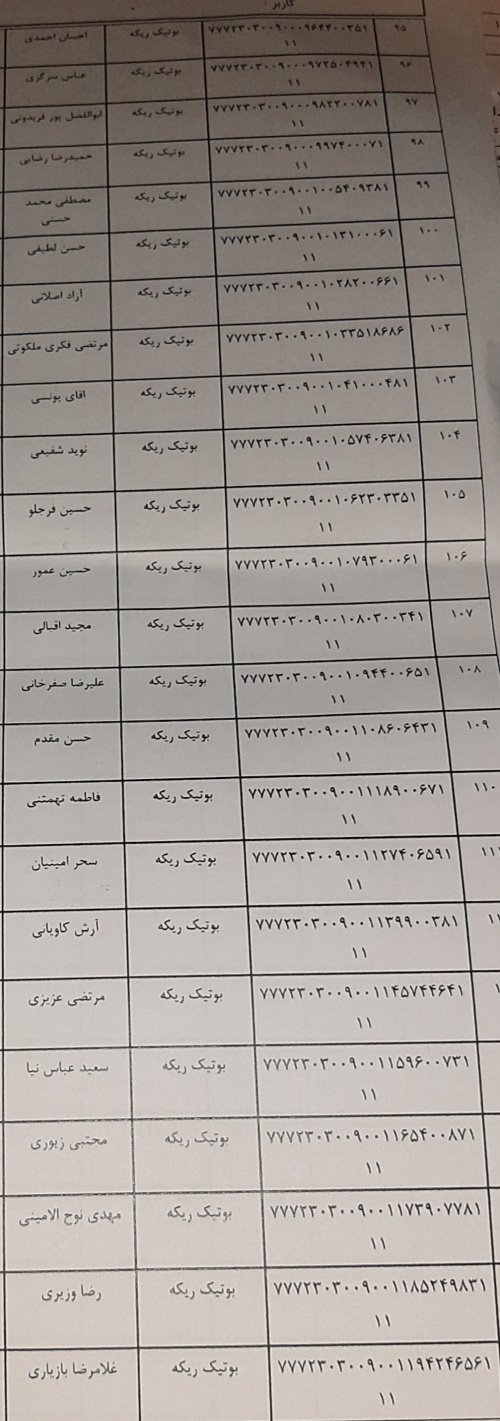 کاربر :
۹۵ ۷۷۷۲۳۰۳۰۰۹۰۰۰۹۶۴۴۰۰۳۵۱ بوتیک ریکه احسان احمدی
۱۱
۹۶ ۷۷۷۲۳۰۳۰۰۹۰۰۰۹۷۲۵۰۴۹۴۱ بوتیک ریکه عباس سرگزی
۱۱
۹۷ ۷۷۷۲۳۰۳۰۰۹۰۰۰۹۸۲۲۰۰۷۸۱ بوتیک ریکه ابوالفضل پور فریدونی
۱۱
۹۸ ۷۷۷۲۳۰۳۰۰۹۰۰۰۹۹۷۴۰۰۰۷۱ بوتیک ریکه حمیدرضا رضایی
۱۱
۹۹ ۷۷۷۲۳۰۳۰۰۹۰۰۱۰۰۵۴۰۹۳۸۱ بوتیک ریکه مصطفی محمد
۱۱ حسنی
۱۰۰ ۷۷۷۲۳۰۳۰۰۹۰۰۱۰۱۳۱۰۰۰۶۱ بوتیک ریکه حسن لطیفی
۱۱
۱۰۱ ۷۷۷۲۳۰۳۰۰۹۰۰۱۰۲۸۲۰۰۶۶۱ بوتیک ریکه آزاد اصلانی
۱۱
۱۰۲ ۷۷۷۲۳۰۳۰۰۹۰۰۱۰۳۳۵۱۸۶۸۶ بوتیک ریکه مرتضی فکری ملکوتی
۱۱
۱۰۳ ۷۷۷۲۳۰۳۰۰۹۰۰۱۰۴۱۰۰۰۴۸۱ بوتیک ریکه اقای یونسی
۱۱
۱۰۴ ۷۷۷۲۳۰۳۰۰۹۰۰۱۰۵۷۴۰۶۳۸۱ بوتیک ریکه نوید شفیعی
۱۱
۱۰۵ ۷۷۷۲۳۰۳۰۰۹۰۰۱۰۶۲۳۰۳۳۵۱ بوتیک ریکه حسین فرجلو
۱۱
۱۰۶ ۷۷۷۲۳۰۳۰۰۹۰۰۱۰۷۹۳۰۰۰۶۱ بوتیک ریکه حسین عمور
۱۱
۱۰۷ ۷۷۷۲۳۰۳۰۰۹۰۰۱۰۸۰۳۰۰۳۴۱ بوتیک ریکه مجید اقبالی
۱۱
۱۰۸ ۷۷۷۲۳۰۳۰۰۹۰۰۱۰۹۴۴۰۰۶۵۱ بوتیک ریکه علیرضا صفرخانی
۱۱
۱۰۹ ۷۷۷۲۳۰۳۰۰۹۰۰۱۱۰۸۶۰۶۴۳۱ بوتیک ریکه حسن مقدم
۱۱
۱۱۰ ۷۷۷۲۳۰۳۰۰۹۰۰۱۱۱۸۹۰۰۶۷۱ بوتیک ریکه فاطمه تهمتنی
۱۱
۷۷۷۲۳۰۳۰۰۹۰۰۱۱۲۷۴۰۶۵۹۱ بوتیک ریکه سحر امینیان
۱۱
۷۷۷۲۳۰۳۰۰۹۰۰۱۱۳۹۹۰۰۳۸۱ بوتیک ریکه آرش کاویانی
۱۱
۷۷۷۲۳۰۳۰۰۹۰۰۱۱۴۵۷۴۴۶۴۱ بوتیک ریکه مرتضی عزیزی
۱۱
۷۷۷۲۳۰۳۰۰۹۰۰۱۱۵۹۶۰۰۷۳۱ بوتیک ریکه سعید عباس نیا
۱۱
۷۷۷۲۳۰۳۰۰۹۰۰۱۱۶۵۴۰۰۸۷۱ بوتیک ریکه محتبی زیوری
۱۱
۷۷۷۲۳۰۳۰۰۹۰۰۱۱۷۳۹۰۷۷۸۱ بوتیک ریکه مهدی نوح الامینی
۱۱
۷۷۷۲۳۰۳۰۰۹۰۰۱۱۸۵۲۴۹۸۳۱ بوتیک ریکه رضا وزیری
۱۱
۷۷۷۲۳۰۳۰۰۹۰۰۱۱۹۴۲۴۶۵۶۱ بوتیک ریکه غلامرضا بازیاری
۱۱